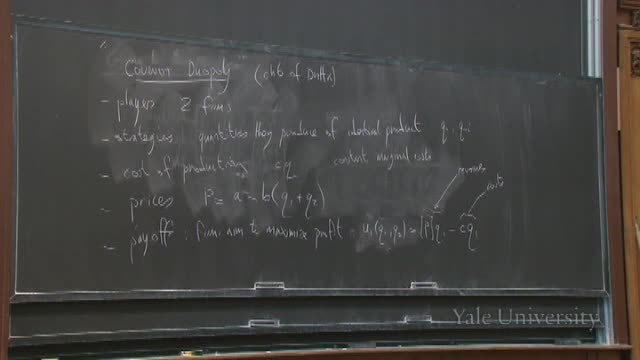 Cournot Duopoly
- players 2 firms
- strategies quantities they produce of identical product qi q-i
- cost of production cq constant marginal costs
- prices P = a - b(q1 + q2)
revenues
costs
- payoffs : firms aim to maximize profit u1(q1,q2) = [P]q1 - cq1
Yale University